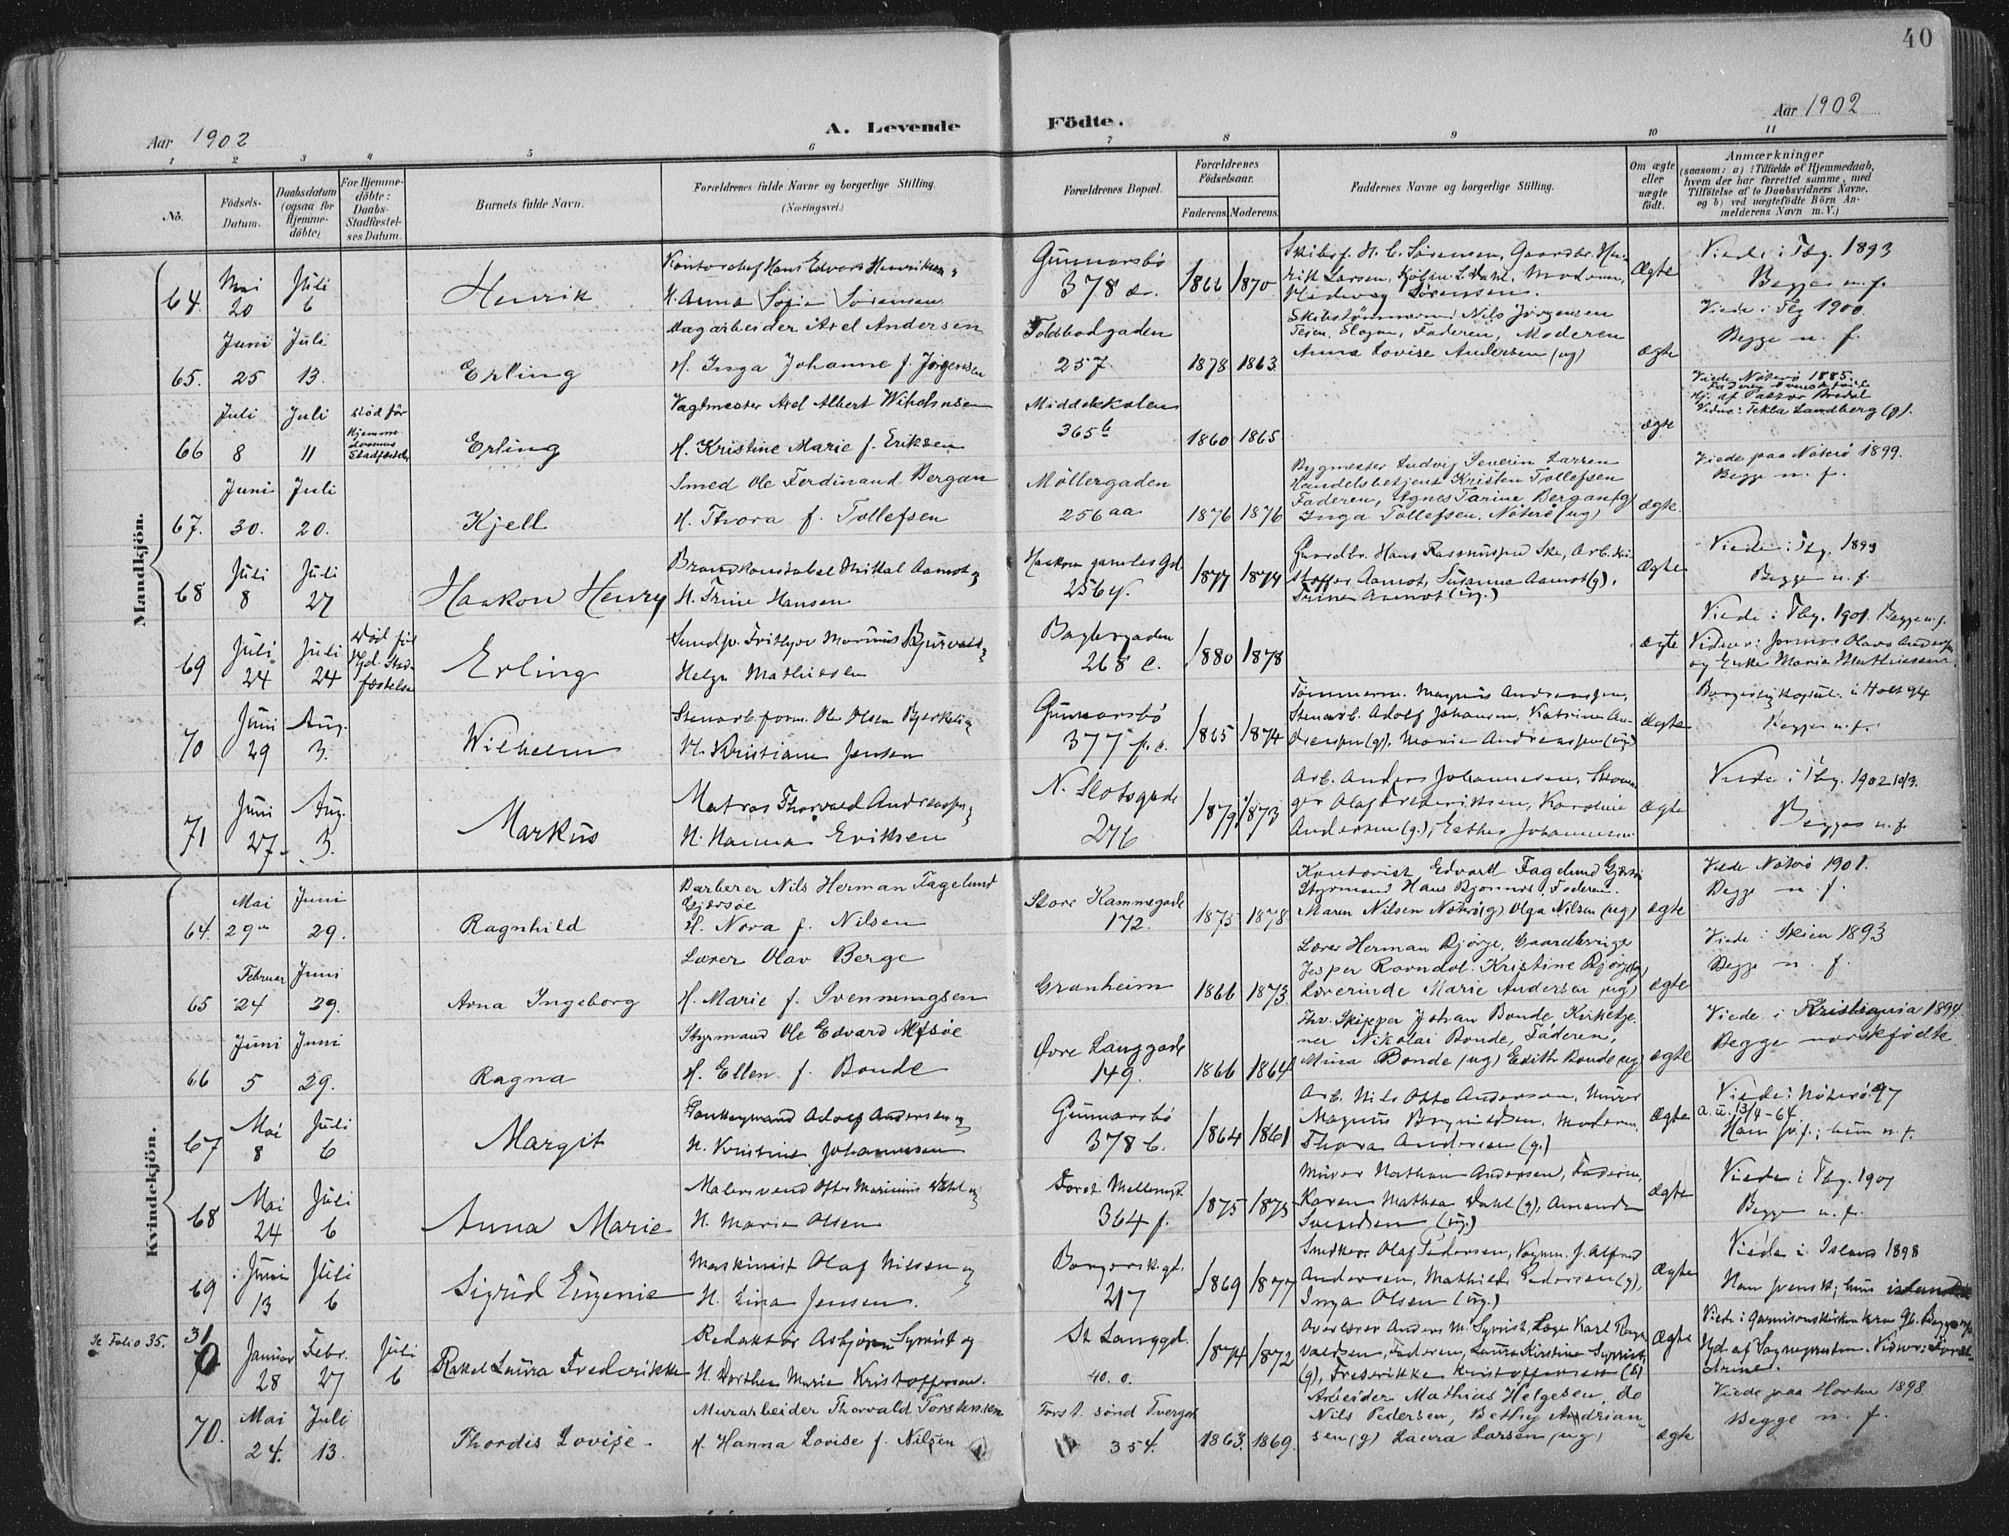 40
Aar 1902
A. Levende
Födte.
Aar 1902
1 2 3 4 5 6 7 8 9 10 11
No.
Födsels-
Datum.
Daabsdatum
(ogsaa for
Hjemme-
döbte)
For Hjemme-
döbte:
Daabs-
Stadfæstel-
ses Datum.
Barnets fulde Navn.
Forældrenes fulde Navne og borgerlige Stilling.
(Næringsvei.)
Forældrenes Bopæl.
Forældrenes
Födselsaar.
Faderens. Moderens.
Faddernes Navne og Stilling.
Om ægte
eller
uægte
födt.
Anmærkninger
(saasom: a) i Tilfælde af Hjemmedaab,
hvem der har forrettet samme, med
Tilföielse af to Daabsvidners Navne,
og b) ved uægtefödte Börn An-
melderens Navn m. V.)
Mandkjön.
64. Mai 20 Juli 6
Henrik
Kontorchef Hans Edvard Henriksen &
H. Anna Sofie Sørensen
Gunnarsbø
378
1866 1870
Skibsf. H. C. Sørensen, Gaardbr. Hen-
rik Larsen, Moderen,
Hedvig Sørensen.
Ægte
Viede i Tbg. 1893
Begge n. f.
65. Juni 25 Juli 13.
Erling
Dagarbeider Axel Andersen
H. Inga Johanne f. Jørgensen
Toldbodgaden
257.
1878 1863
Skibstømmermand Nils Jørgensen
Teien, Slagen, Faderen, Moderen
Anna Lovise Andersen (ug)
ægte
Viede i Tbg 1900.
Begge n. f.
66 Juli 8 Juli 11
død før
Hjemme-
daabens
Stadfæstelse
Erling
Vagtmester Axel Albert
H. Kristine Marie f. Eriksen
365b
1860 1865
ægte
Viede Nøterø 1885.
Hj. af Pastor Bredal
Vidne: Tekla Sandberg (g).
67. Juni 30. Juli 20.
Kjell
Smed Ole Ferdinand Bergan
H. Thora f. Tollefsen
Møllergaden
256aa
1876 1876
Bygmester Ludvig Severin Larsen
Handelsbetjent Kristen Tollefsen
Faderen, Agnes Tarine Bergan (g)
Inga Tollefsen. Nøterø (ug)
ægte.
Viede paa Nøterø 1899.
Begge n. f.
68 Juli 8 Juli 27
Haakon Henry
Brandkonstabel Mikal Aamot &
H. Trine Hansen
Haakon gamles Gd
256 y.
1877 1874
Gaardbr. Hans Rasmussen Ske, Arb. Kri-
stoffer Aamot, Susanne Aamot (g),
Trine Aamot (ug.)
Ægte
Viede i Tbg. 1899
Begge n. f.
69 Juli 24 Juli 24
Død før
Hjd. Stad-
fæstelse
Erling
Helga Mathiesen
Baglergaden
268 c.
1880 1878
ægte
Viede i Tbg. 1901. Begge n. f.
Vidner: Jomfru Olava Andersen
og Enke Maria Mathiesen
70 Juni 29 Aug. 3.
Wilhelm
Stenarb.form. Ole Olsen Bjerkeli &
H. Kristiane Jensen
Gunnarsbø
377 f.
1865 1874
Tømmerm. Magnus Andreassen,
Stenarb. Adolf Johansen, Katrine An-
dreassen (g), Marie Andreassen (ug)
Ægte
Begge n. f.
71 Juni 27 Aug. 3.
Markus
Matros Thorvald Andreassen &
H. Hanna Eriksen
N. Slotsgade
276
1879 1873
Arb. Anders Johannesen,
Olaf Frederiksen, Karoline
Andersen (g.), Esther Johannesen
ægte
Viede i Tbg. 1902
Begge n. f.
Kvindekjön.
64. Mai 29de Juni 29.
Ragnhild
Barberer Nils Herman Fagelund
Gjersøe
H. Nora f. Nilsen
Store Kammegade
172.
1875 1878
Kontorist Edvard Fagelund Gjersøe
Styrmand Hans Bjønnes, Faderen.
Maren Nilsen Nøterø (g) Olga Nilsen (ug)
ægte
Viede Nøterø 1901.
Begge n. f.
65 Februar 24 Juni 29.
Arna Ingeborg
Lærer Olav Berge
H. Marie f. Svenningsen
Granheim
1866 1873
Lærer Herman Bjørge, Gaardbruger
Jesper Ravndal. Kristine Bjørge (g)
Lærerinde Marie Andersen (ug)
ægte
Viede i Skien 1893
Begge n. f.
66 Juni 5 Juni 29.
Ragna
Styrmand Ole Edvard
H. Ellen f. Bonde
Øvre Langgade
149.
1866 1864
Fhv. Skipper Johan Bonde Kirketje-
ner Nikolai Bonde, Faderen,
Mina Bonde (ug) Edith Bonde (ug)
ægte
Viede i Kristiania 1894
Begge norskfødte
67 Mai 8 Juli 6
Margit
Adolf Andersen &
H. Kristine Johannesen
Gunnarsbø
378 b.
1864 1861
Arb. Nils Otto Andersen, Murer
Magnus Brynildsen, Moderen,
Thora Andersen (g.)
Ægte
Viede i Nøterø 97
a. u. 13/4-64.
Han sv. f.; hun n. f.
68 Mai 24 Juli 6
Anna Marie
Malersvend Marinius Dahl &
H. Marie Olsen
364 f.
1875 1875
Murer Nathan Andersen, Faderen,
Karen Mathea Dahl (g), Amanda
Svendsen (ug.)
Ægte
Viede i Tbg. 1901
Begge n. f.
69 Juni 13 Juli 6
Sigrid Eugenie
Maskinist Olaf Nilsen &
H. Lina Jensen.
217
1869 1877
Olaf Pedersen, Alfred
Andersen, Mathilde Pedersen (g),
Inga Olsen (ug.)
Ægte
Viede i Island 1898
Han svensk; hun islandsk
Se Folio 35.
31
Januar 28 Febr. 27 Juli 6
Rakel Laura Frederikke
Redaktør Asbjørn Syvrist og
H. Dorthea Marie Kristoffersen.
St. Langgd.
40. o.
1874 1872
Overlærer Anders M. Syvrist, Læge Karl Rog-
valdsen, Faderen, Laura Kirstine Syvrist
(g), Frederikke Kristoffersen (g)
Ægte
Viede i Garnisonskirken
Hjd. af Sognepresten. Vidner: Foræl-
drene.
70. Mai 24. Juli 13.
Thordis Lovise.
Murarbeider Thorvald Torstensen
H. Hanna Lovise f. Nilsen
354.
1863. 1869.
Arbeider Mathias Helgesen, do
Nils Pedersen, Bethy Andrian-
sen (g) Laura Larsen (ug)
ægte
Viede paa Horten 1898.
Begge n. f.